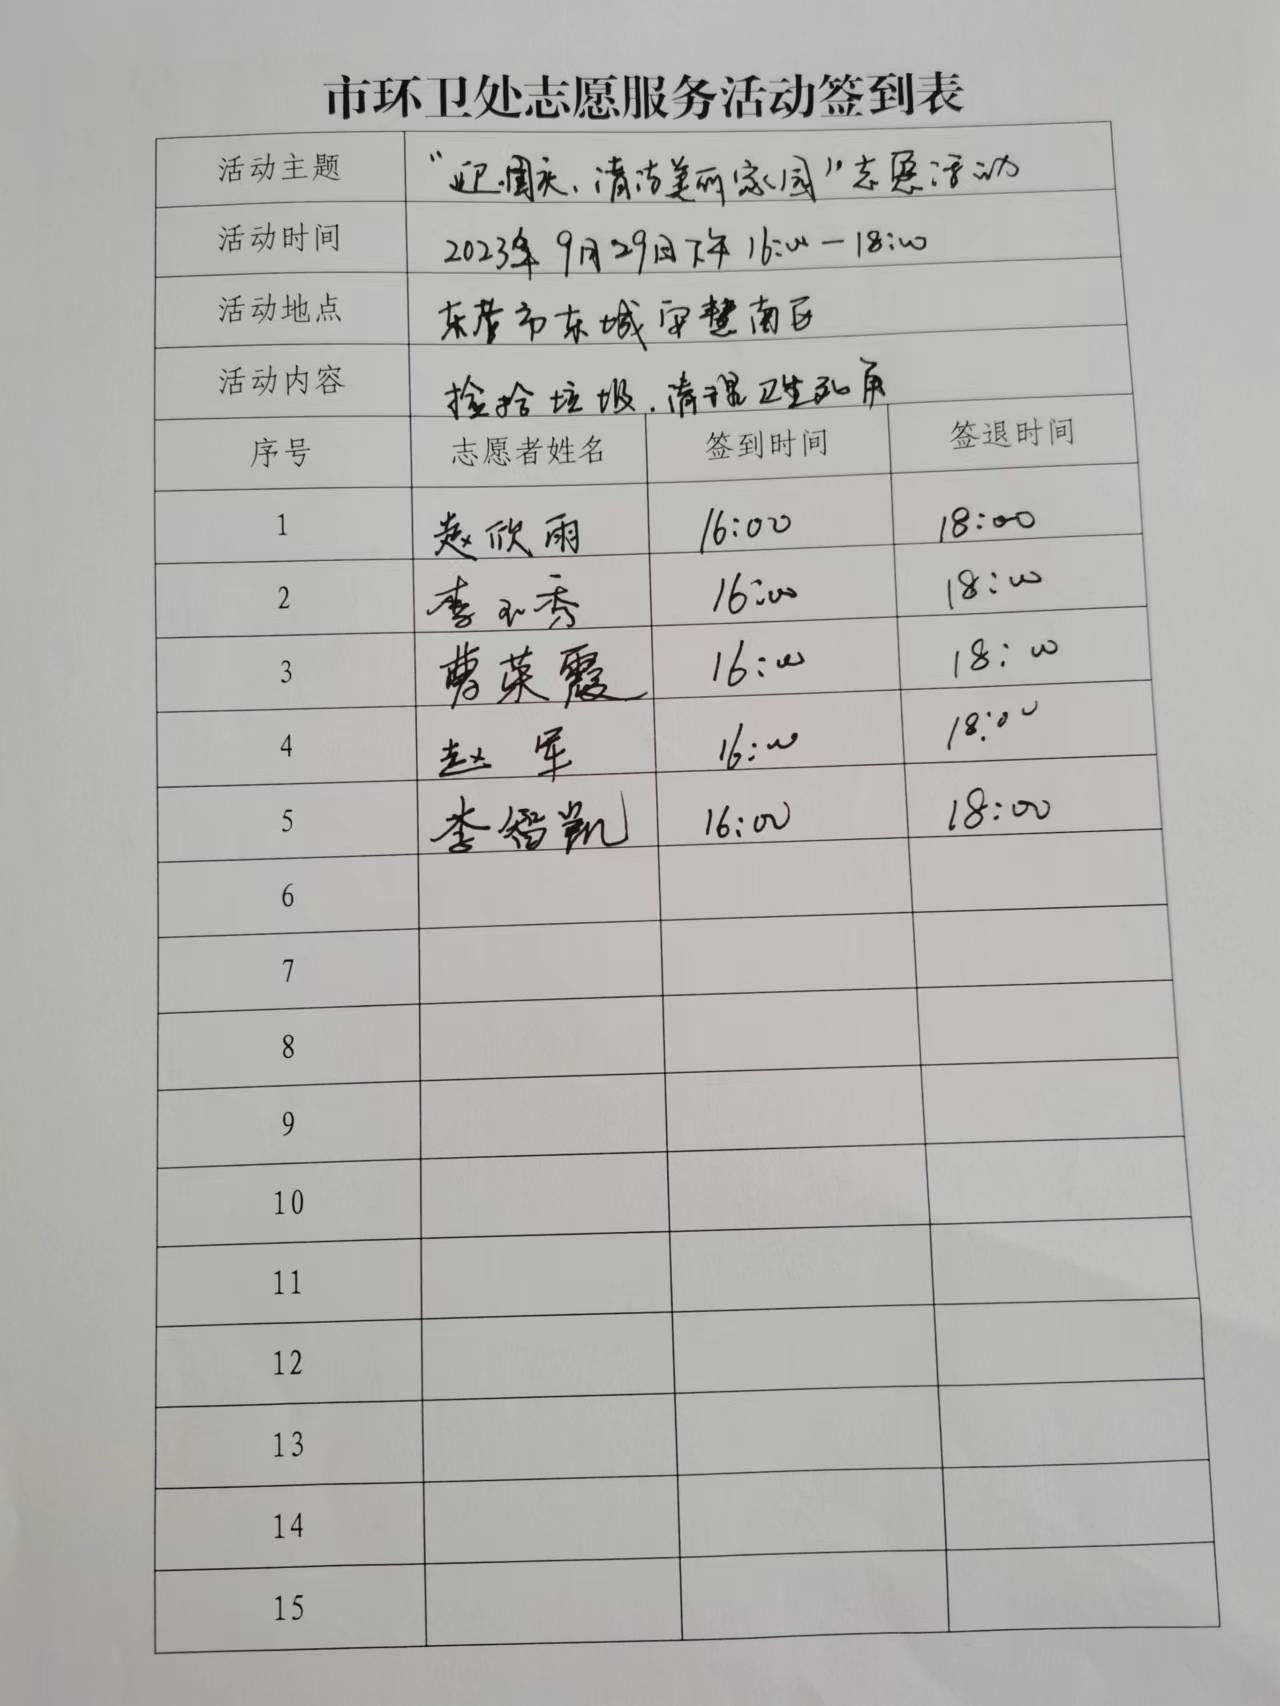 市环卫处志愿服务活动签到表
活动主题 “迎国庆、清洁美丽家园”志愿活动
活动时间 2023年9月29日下午16:00—18:00
活动地点 东营市东城安慧南区
活动内容 捡拾垃圾、清理卫生死角
序号 志愿者姓名 签到时间 签退时间
1 赵欣雨 16:00 18:00
2 李秀 16:00 18:00
3 曹英霞 16:00 18:00
4 赵军 16:00 18:00
5 李智凯 16:00 18:00
6
7
8
9
10
11
12
13
14
15